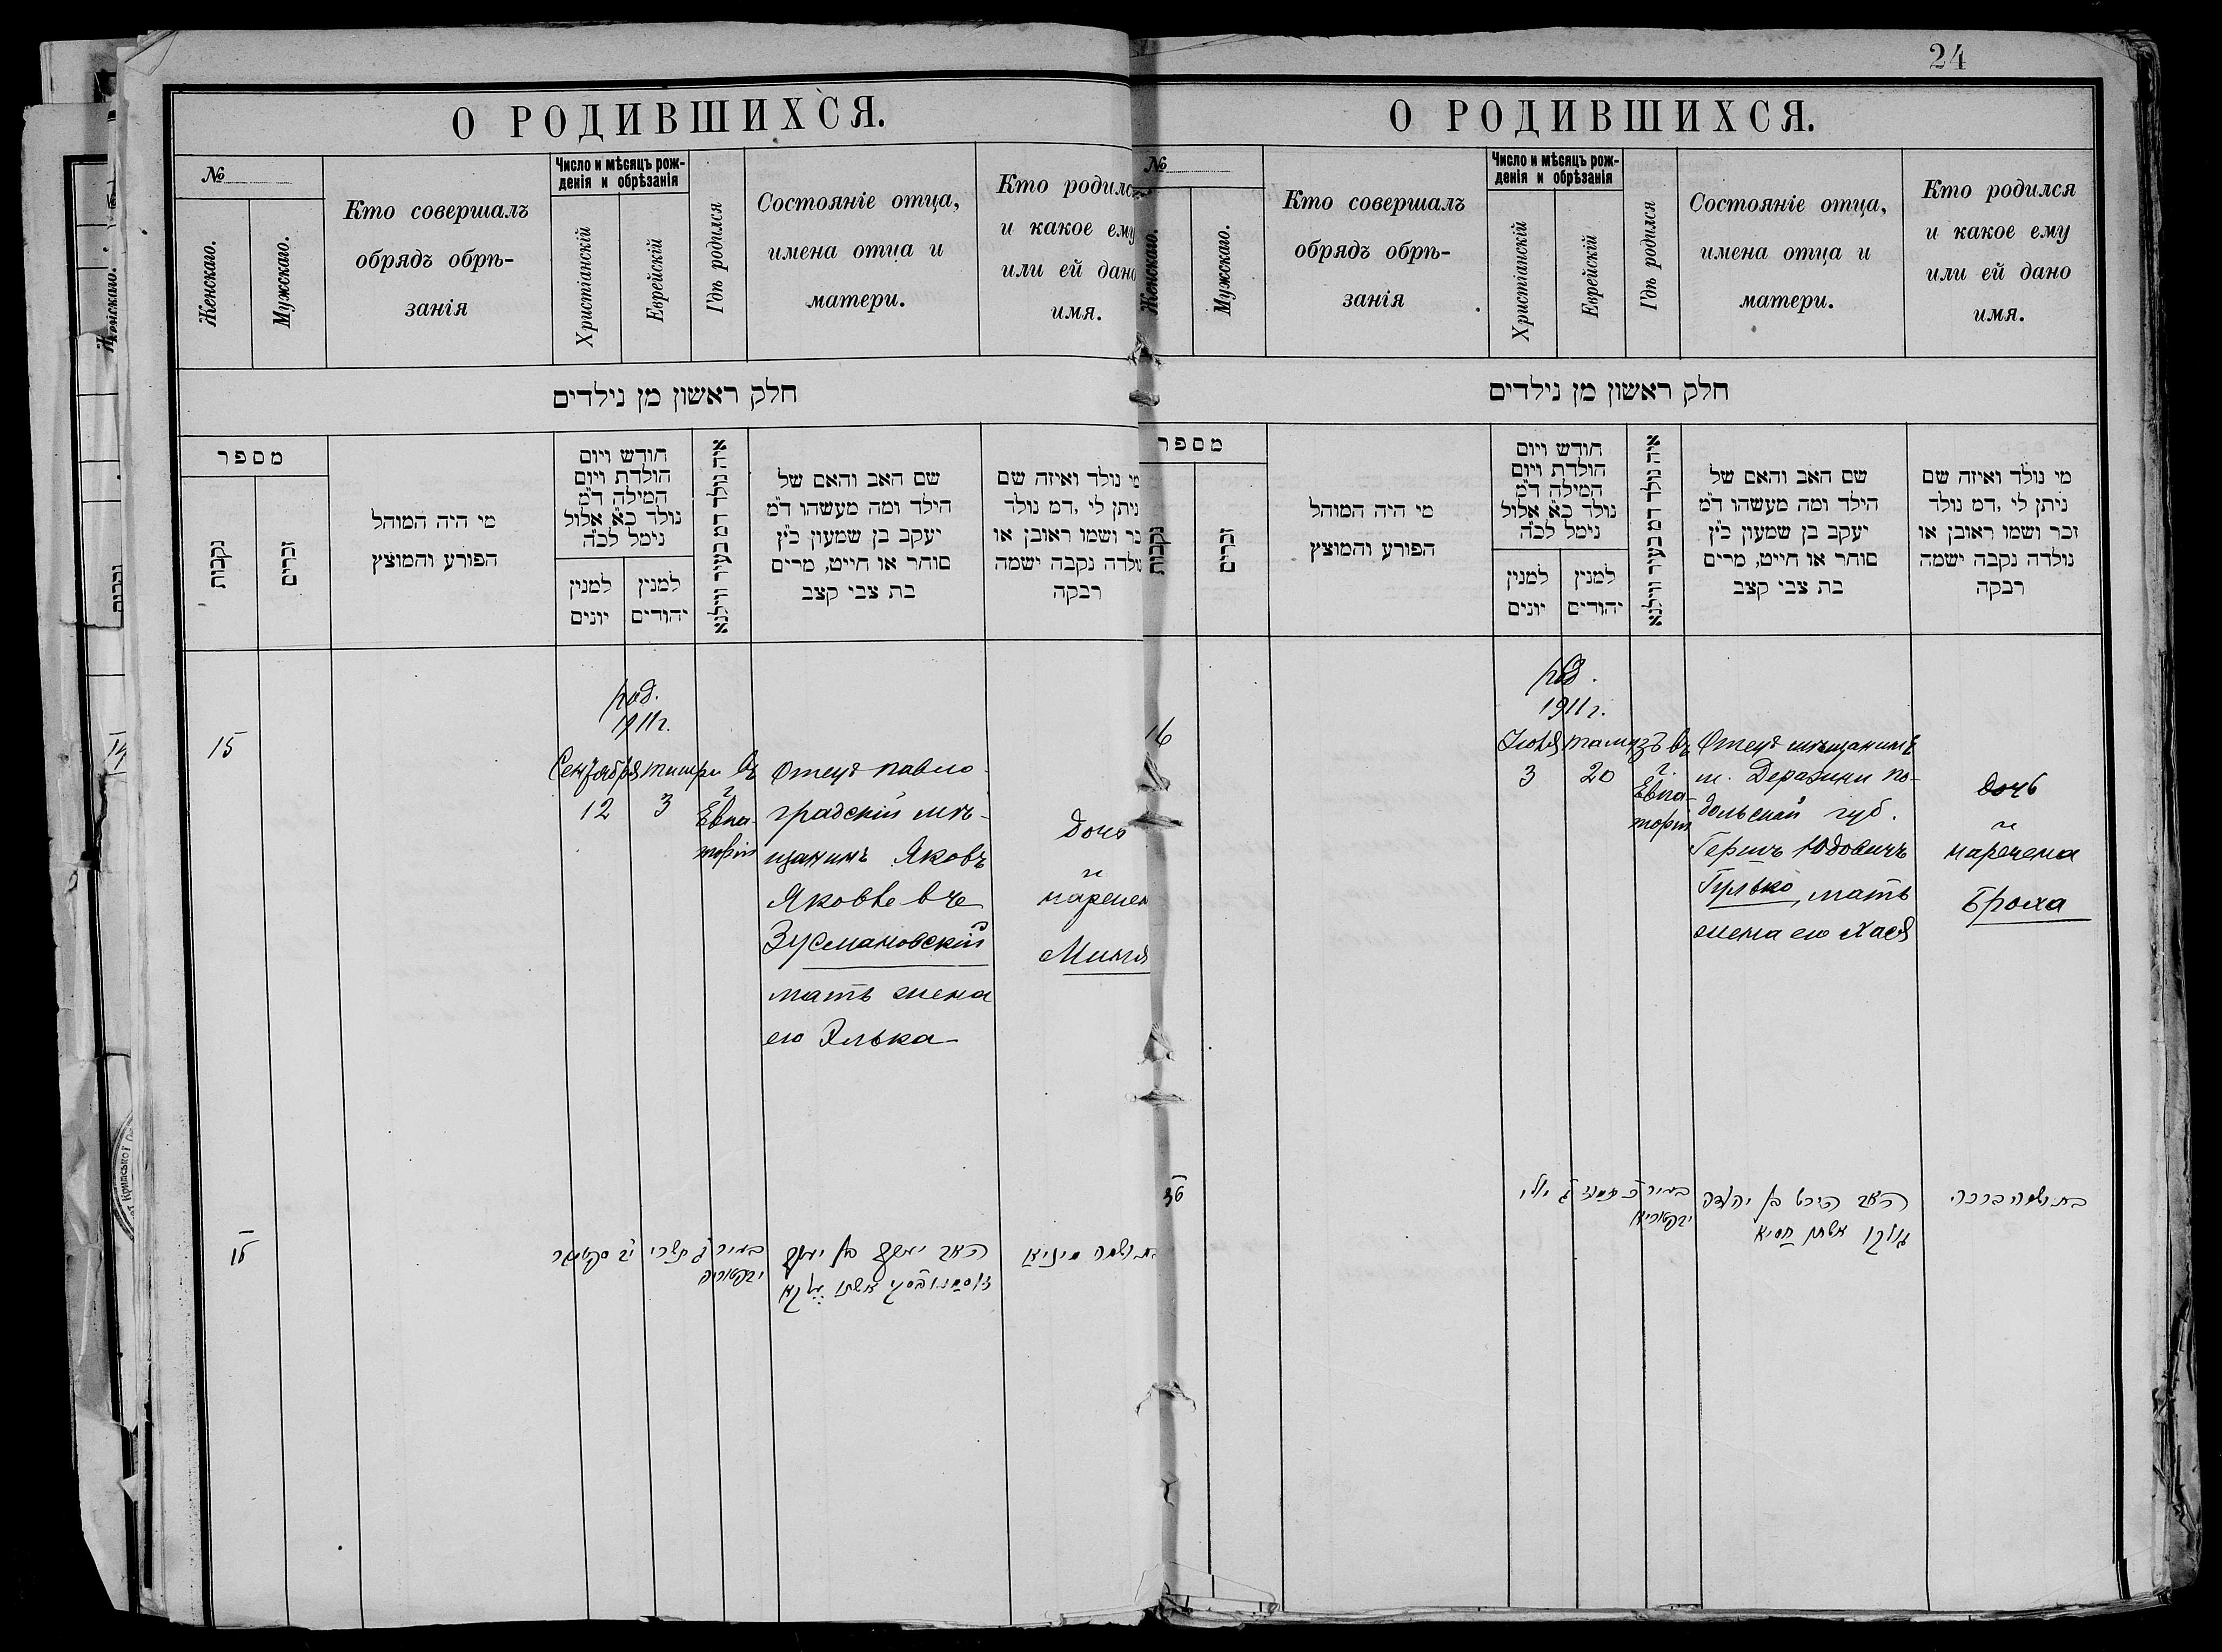 О РОДИВШИХСЯ.
№
Женскаго.
Мужскаго.
Кто совершалъ
обрядъ обрѣ-
занія
Число и мѣсяцъ рож-
денія и обрѣзанія
Христіанскій
Еврейскій
Гдѣ родился
Состояніе отца,
имена отца и
матери.
Кто родился
и какое ему
или ей дано
имя.
חלק ראשון מן נילדים
מספר
נקבות
זכרים
מי היה המוהל
הפורע והמוצץ
חודש ויום
הולדת ויום
המילה ד״מ
נולד כ״א אלול
נימל לכ״ה
למנין
יונים
למנין
יהודים
איה נולד דמ בעיר ווילנא
שם האב והאם של
הילד ומה מעשהו ד״מ
יעקב בן שמעון כ״ץ
סוחר או חייט, מרים
בת צבי קצב
מי נולד ואיזה שם
ניתן לי ,דמ נולד
זכר ושמו ראובן או
נולדה נקבה ישמה
רבקה
15
год.
1911 г.
Сентября тишри въ
12 3
г.
Евпа-
торіи
Отецъ павло-
градскій мѣ-
щанинъ Яковъ
Яковлевъ
Зусмановскій
мать жена
его Элька
дочь
и
наречен
Миня
בעיר ג תשרי יב
האב יעקב בן יעקב
אשתו עלקא
ושמה מיניא
24
О РОДИВШИХСЯ.
№
Женскаго.
Мужскаго.
Кто совершалъ
обрядъ обрѣ-
занія
Число и мѣсяцъ рож-
денія и обрѣзанія
Христіанскій
Еврейскій
Гдѣ родился
Состояніе отца,
имена отца и
матери.
Кто родился
и какое ему
или ей дано
имя.
חלק ראשון מן נילדים
מספר
נקבות
זכרים
מי היה המוהל
הפורע והמוצץ
חודש ויום
הולדת ויום
המילה ד״מ
נולד כ״א אלול
נימל לכ״ה
למנין
יונים
למנין
יהודים
איה נולד דמ בעיר ווילנא
שם האב והאם של
הילד ומה מעשהו ד״מ
יעקב בן שמעון כ״ץ
סוחר או חייט, מרים
בת צבי קצב
מי נולד ואיזה שם
ניתן לי ,דמ נולד
זכר ושמו ראובן או
נולדה נקבה ישמה
רבקה
16
год.
1911 г.
Іюля тамузъ въ
3 20
г.
Евпа-
торіи
Отецъ мѣщанинъ
м. Деражни По-
дольской губ.
Гершъ Юдовичъ
Гулько, мать
жена его Хася
дочь
и
наречена
Броха
בעיר כ תמוז ג יולי
האב הירש בן יהודה
גולקו אשתו חסיא
בת ושמה ברכה